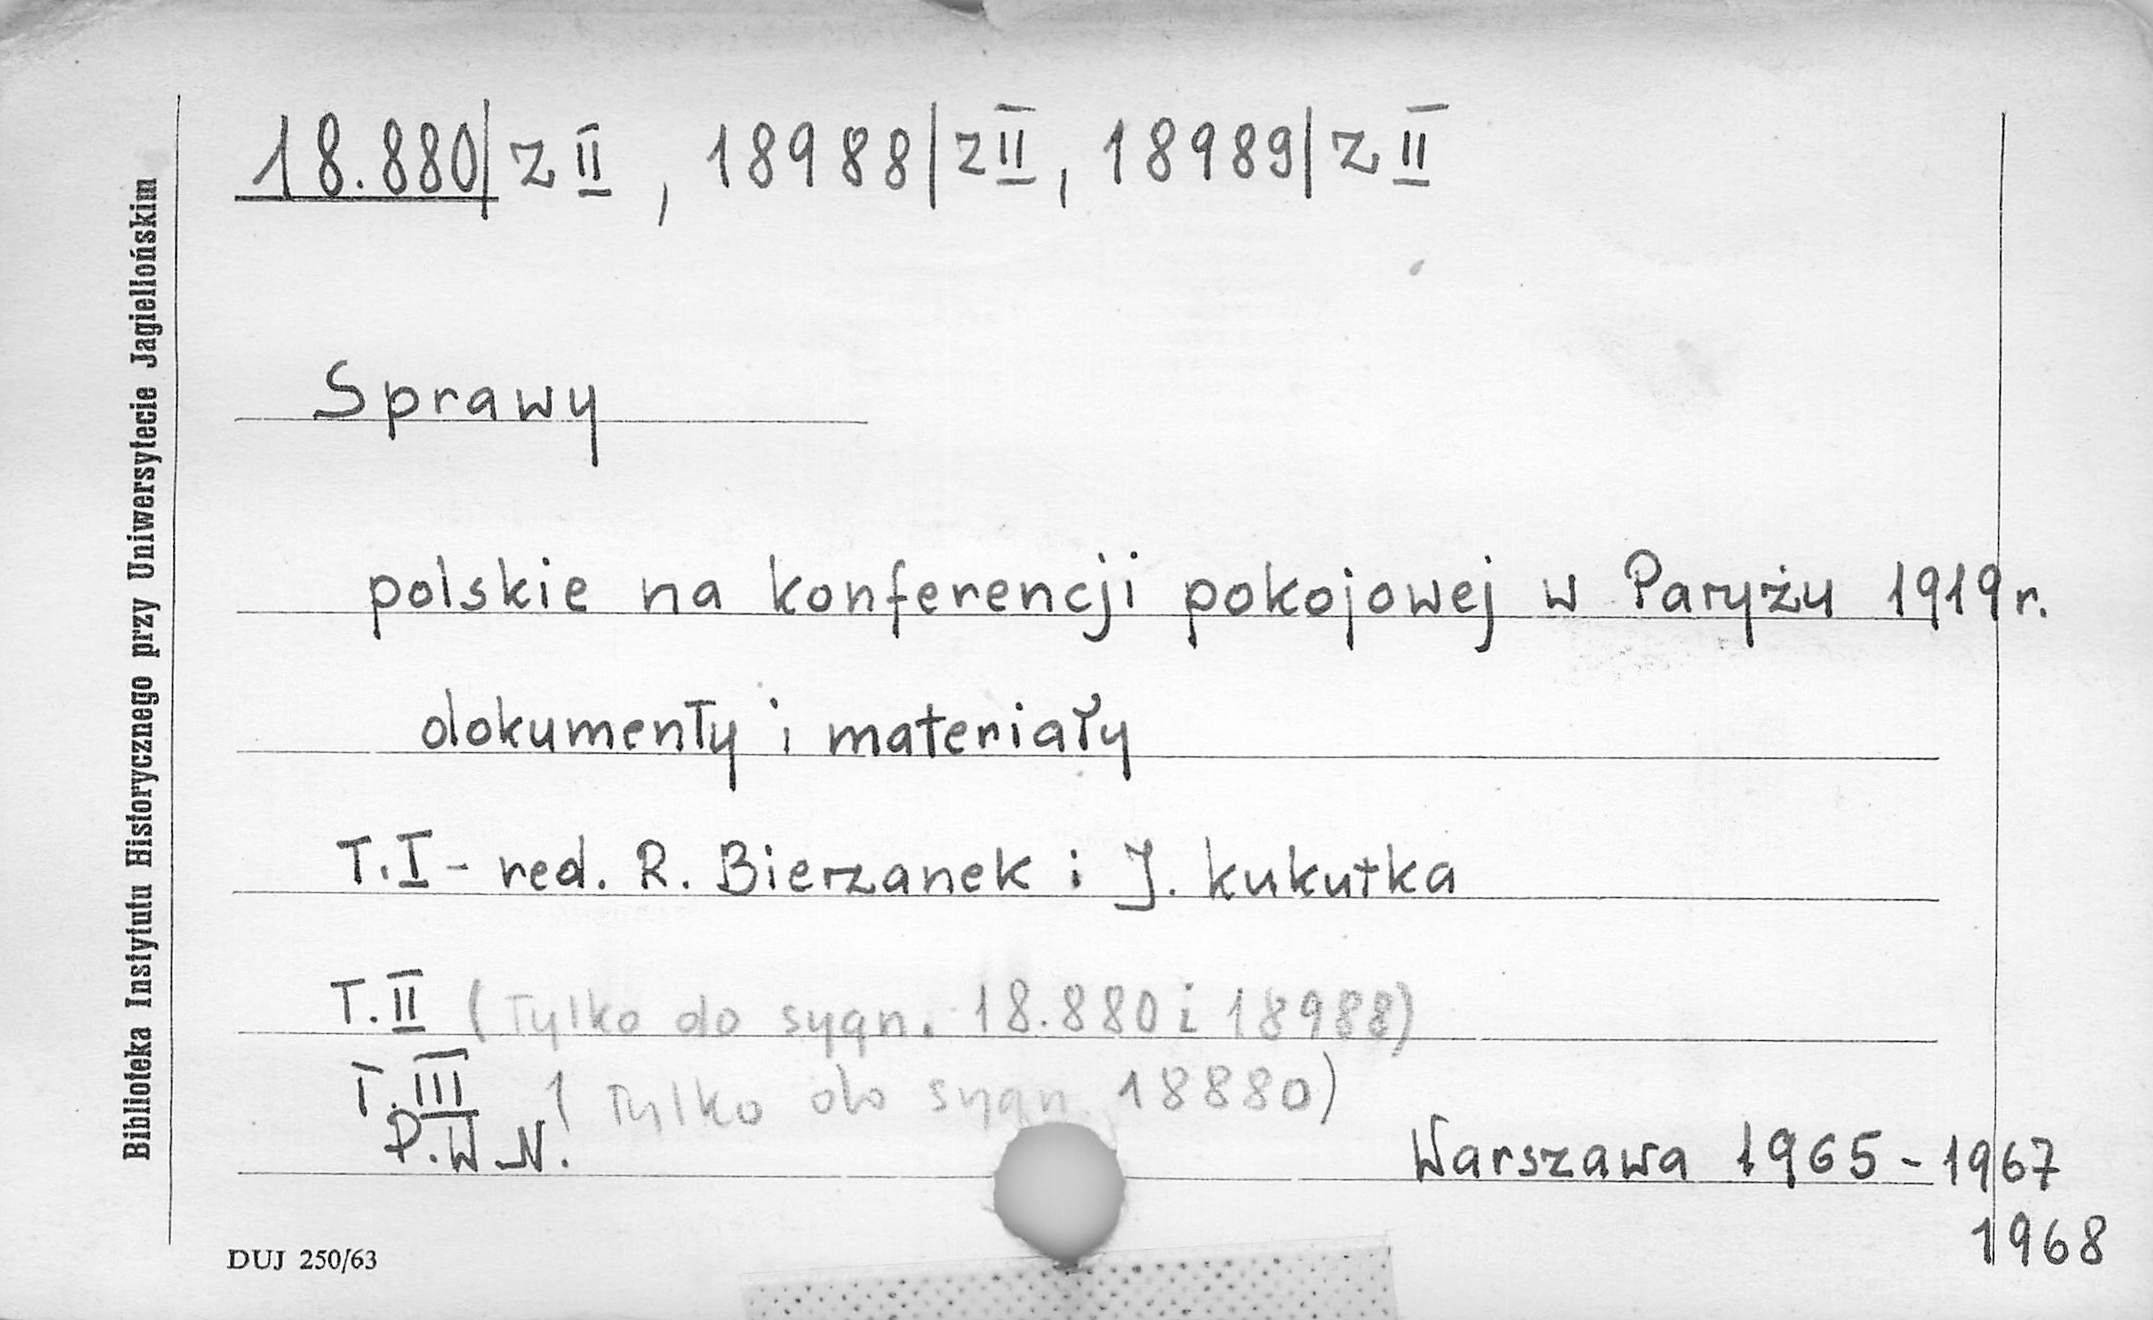 18.880/z II, 18988/z II, 18989/z II
Sprawy
polskie na konferencji pokojowej w Paryżu 1919 r.
dokumenty i materiały
T. I - red. R. Bierzanek i J. Kukułka
T. II (Tylko do sygn. 18.880 i 18988)
T. III (Tylko do sygn. 18880)
P.W.N.
Warszawa 1965 - 1967
1968
DUJ 250/63
Biblioteka Instytutu Historycznego przy Uniwersytecie Jagiellońskim